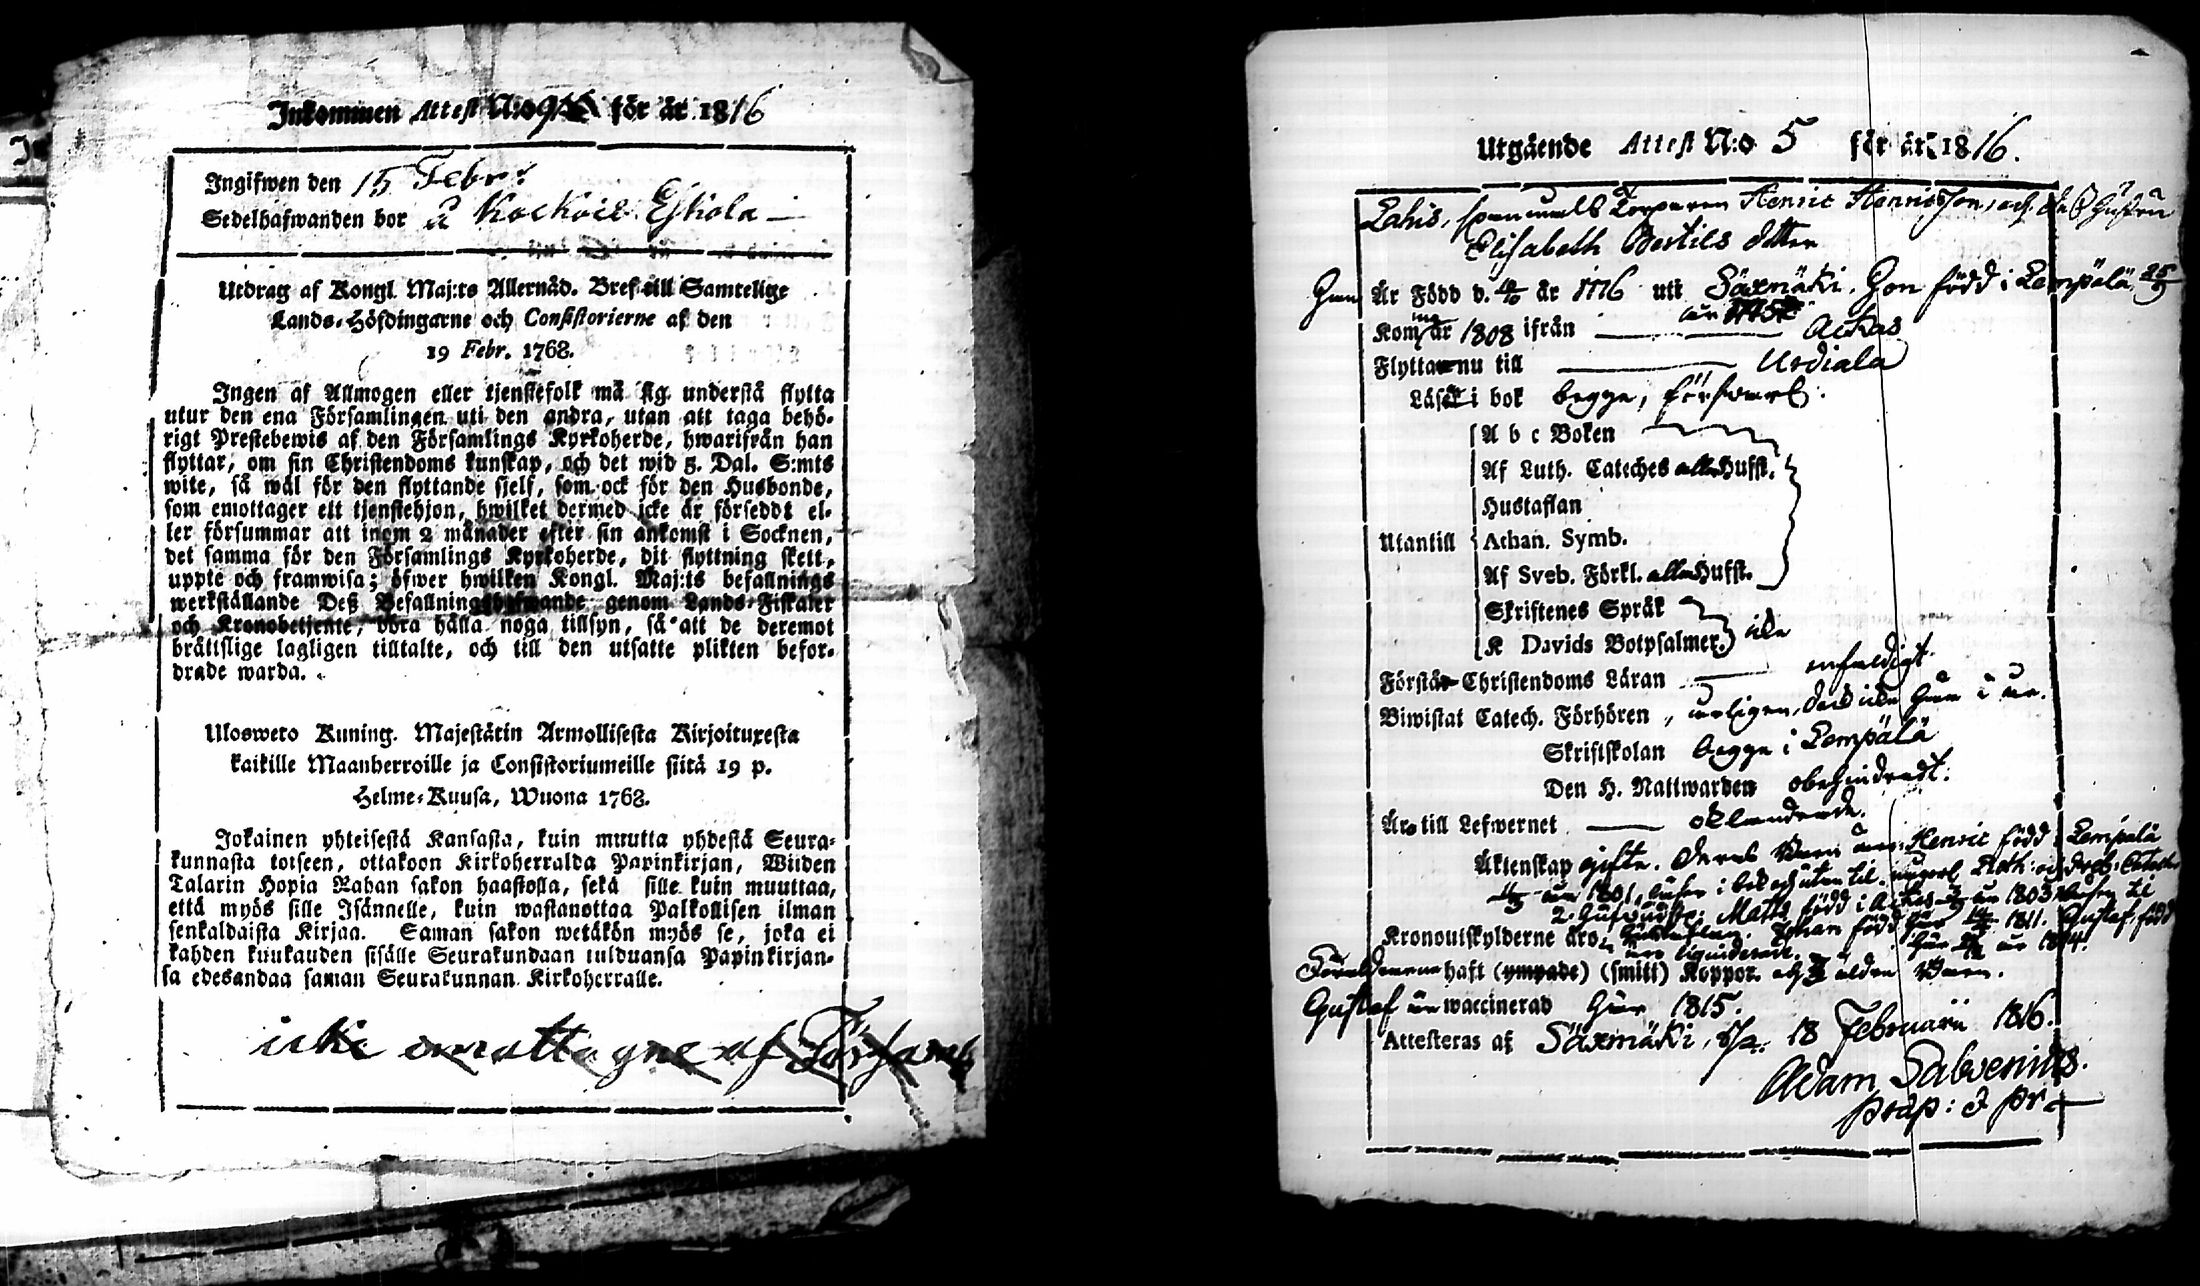 Inkommen Attest N:o för år 1816
Ingifwen den 15 Febr:
Sedelhafwanden bor å Kockois Eskola
Utdrag af Kongl. Maj:ts Allernåd. Bref till Samtelige
Lands-Höfdingarne och Consistorierne af den
19 Febr. 1768.
Ingen af Allmogen eller tjenstefolk må sig understå flytta
utur den ena Församlingen uti den andra, utan att taga behö-
rigt Prestebewis af den Församlings Kyrkoherde, hwarifrån han
flyttar, om sin Christendoms kunskap, och det wid 5. Dal. S:mts
wite, så wäl för den flyttande sjelf, som ock för den Husbonde,
som emottager ett tjenstehjon, hwilket dermed icke är försedt el-
ler försummar att inom 2 månader efter sin ankomst i Socknen,
det samma för den Församlings Kyrkoherde, dit flyttning skett,
uppte och framwisa; öfwer hwilken Kongl. Maj:ts befallnings
werkställande Deß Befallningshafwande genom Lands-Fiskaler
och Kronobetjente, böra hålla noga tillsyn, så att de deremot
brättslige lagligen tilltalte, och till den utsatte plikten befor-
drade warda.
Ulosweto Kuning. Majestätin Armollisesta Kirjoituxesta
kaikille Maanherroille ja Consistoriumeille siitä 19 p.
Helme-Kuusa, Wuona 1768.
Jokainen yhteisestä Kansasta, kuin muutta yhdestä Seura-
kunnasta toiseen, ottakoon Kirkoherralda Papinkirjan, Wiiden
Talarin Hopia Rahan sakon haastolla, sekä sille kuin muuttaa,
että myös sille Isännelle, kuin wastanottaa Palkollisen ilman
senkaldaista Kirjaa. Saman sakon wetäkön myös se, joka ei
kahden kuukauden sisälle Seurakundaan tulduansa Papinkirjan-
sa edesandaa saman Seurakunnan Kirkoherralle.
icke emottagne af Församl
Utgående Attest N:o 5 för år 1816.
Lahis, Torparen Henric Henricsson, och deß Hustru
Elisabeth Bertils dotter
Är Född d. år 1776 uti Säxmäki. Hon född i Lempälä 25/5
Kom år 1808 ifrån Ackas
Flytta nu till Urdiala
Läsa i bok begge, förswarl.
A b c Boken
Af Luth. Cateches alla Hufst.
Hustaflan
Utantill Athan. Symb.
Af Sveb. Förkl. alla Hufst.
Skriftenes Språk
K Davids Botpsalmer. icke
Förstå Christendoms Läran enfaldigt
Biwistat Catech. Förhören, årligen, dock icke Hon i år.
Skriftskolan begge i Lempälä
Den H. Nattwarden obehindradt.
Äro till Lefwernet oklandrade.
Äktenskap gifte. Deras Barn äro: Henric född i Lempälä
år 1801, läser i bok och utan til
Matts född i Ackas år 1803
Kronoutskylderne äro Johan född här 1811. Gustaf, född
här år 1814.
Föräldrarne haft (ympade) (smitt) Koppor och äldre Barn.
Gustaf är waccinerad här 1815.
Attesteras af Säxmäki, d. 18 Februarii 1816.
Adam Salvenius.
præp: & pr